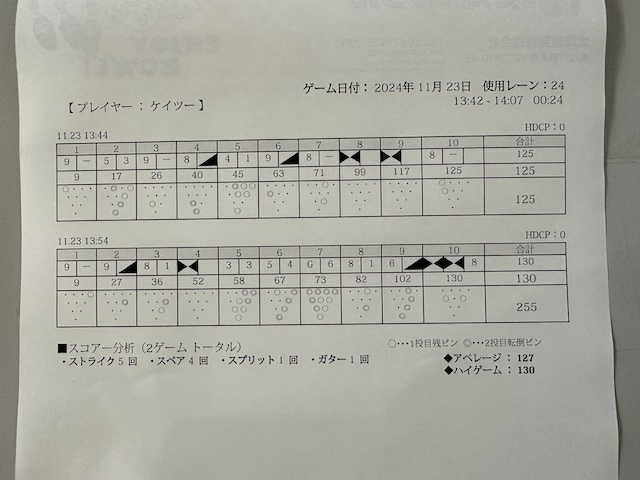 ゲーム日付： 2024年 11月 23日　使用レーン：24
【 プレイヤー ： ケイツー 】
13:42 - 14:07　00:24
HDCP：0
11.23 13:44
1 2 3 4 5 6 7 8 9 10 合計
9 － 5 3 9 － 8 ◢ 4 1 9 ◢ 8 － ▶◀ ▶◀ 8 － 125
9 17 26 40 45 63 71 99 117 125 125
125
HDCP：0
11.23 13:54
1 2 3 4 5 6 7 8 9 10 合計
9 － 9 ◢ 8 1 ▶◀ 3 3 5 4 G 6 8 1 6 ◢ ▶◀ ▶◀ 8 130
9 27 36 52 58 67 73 82 102 130 130
255
■スコアー分析（2ゲーム トータル）
○･･･1投目残ピン ◎･･･2投目転倒ピン
・ストライク 5 回　・スペア 4 回　・スプリット 1 回　・ガター 1 回
◆アベレージ： 127
◆ハイゲーム： 130